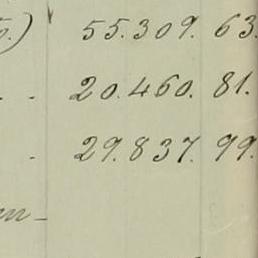 5.) 55.309. 63.
- - 20.460. 81.
- 29.837. 99.
en-